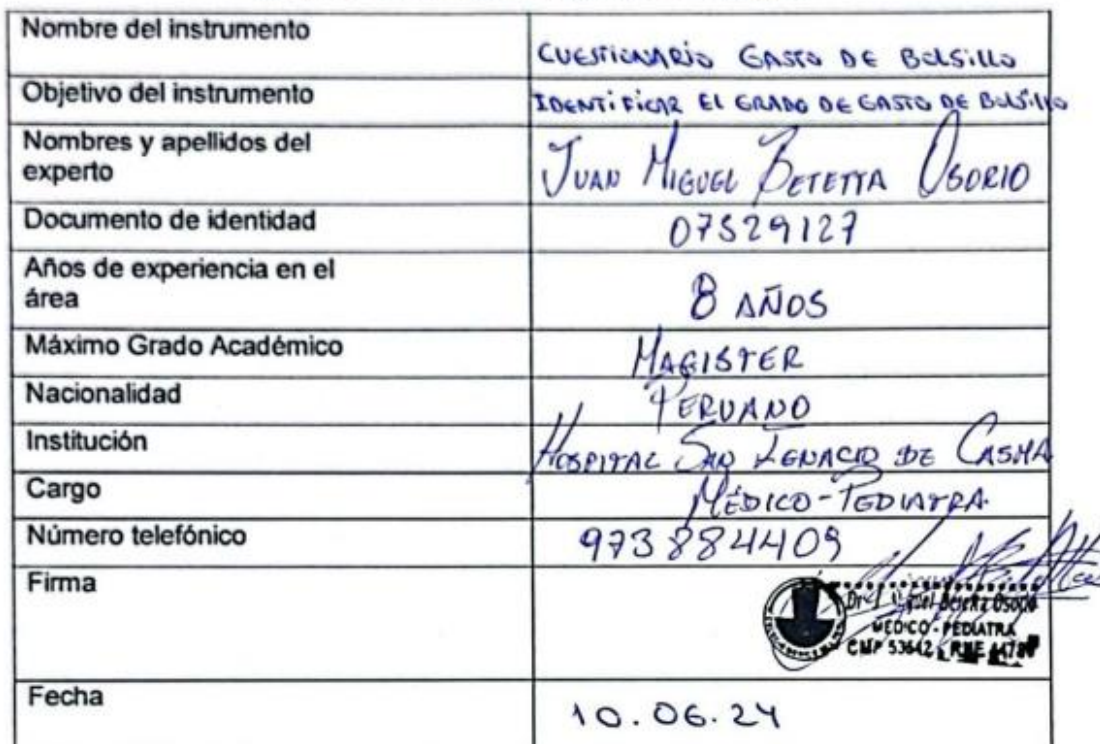 Nombre del instrumento
CUESTIONARIO GASTO DE BOLSILLO
Objetivo del instrumento
IDENTIFICAR EL GRADO DE GASTO DE BOLSILLO
Nombres y apellidos del
experto
JUAN MIGUEL BETETTA OSORIO
Documento de identidad
07529127
Años de experiencia en el
área
8 AÑOS
Máximo Grado Académico
MAGISTER
Nacionalidad
PERUANO
Institución
HOSPITAL SAN IGNACIO DE CASMA
Cargo
MÉDICO - PEDIATRA
Número telefónico
973884409
Firma
MEDICO - PEDIATRA
CMP 53642 RNE
Fecha
10.06.24